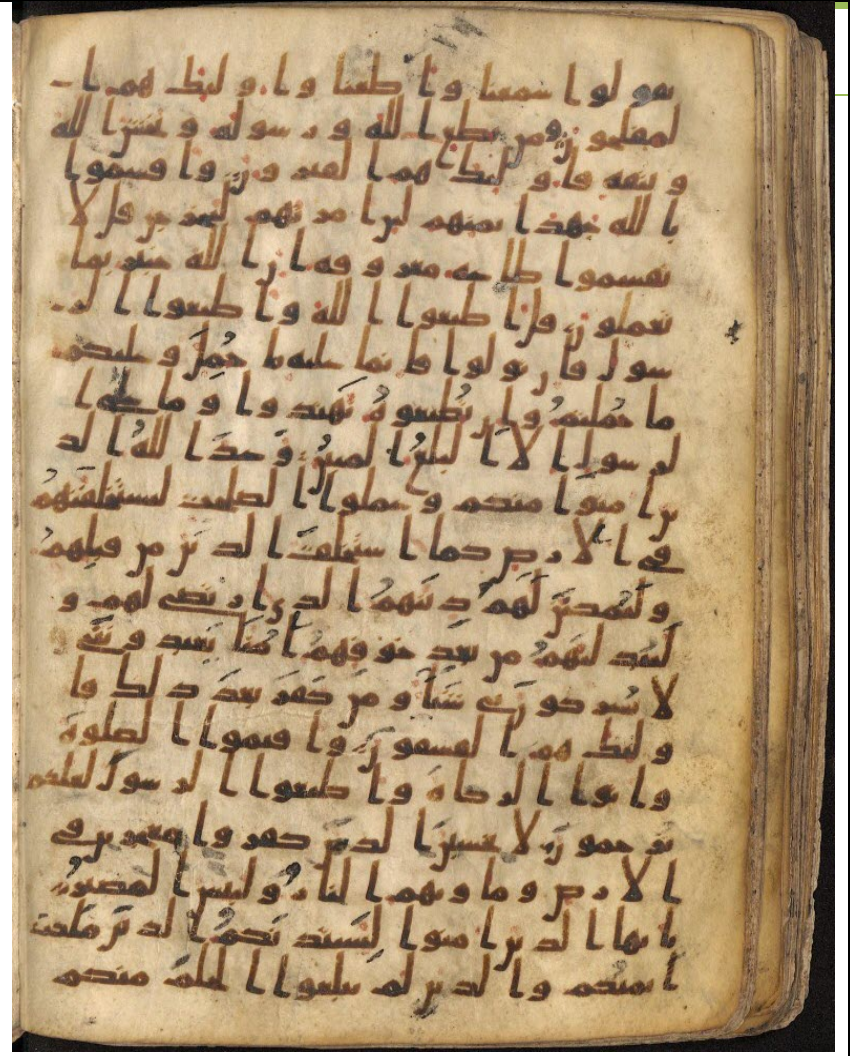 يقولوا سمعنا واطعنا واولئك هم ا
لمفلحون ومن يطع الله ورسوله ويخش الله
ويتقه فاولئك هم الفئزون واقسموا
بالله جهد ايمنهم لين امرتهم ليخرجن قل لا
تقسموا طاعه معروفه ان الله خبير بما
تعملون قل اطيعوا الله واطيعوا الر
سول فان تولوا فانما عليه ما حمل وعليكم
ما حملتم وان تطيعوه تهتدوا وما على ا
لرسول الا البلغ المبين وعد الله الذ
ين امنوا منكم وعملوا الصلحت ليستخلفنهم
في الارض كما استخلف الذين من قبلهم
وليمكنن لهم دينهم الذي ارتضى لهم و
ليبدلنهم من بعد خوفهم امنا يعبدونني
لا يشركون بي شيا ومن كفر بعد ذلك فا
ولئك هم الفسقون واقيموا الصلوة
واتوا الزكاة واطيعوا الرسول لعلكم
ترحمون لا تحسبن الذين كفروا معجزين في
الارض وماويهم النار ولبئس المصير
يايها الذين امنوا ليستذنكم الذين ملكت
ايمنكم والذين لم يبلغوا الحلم منكم